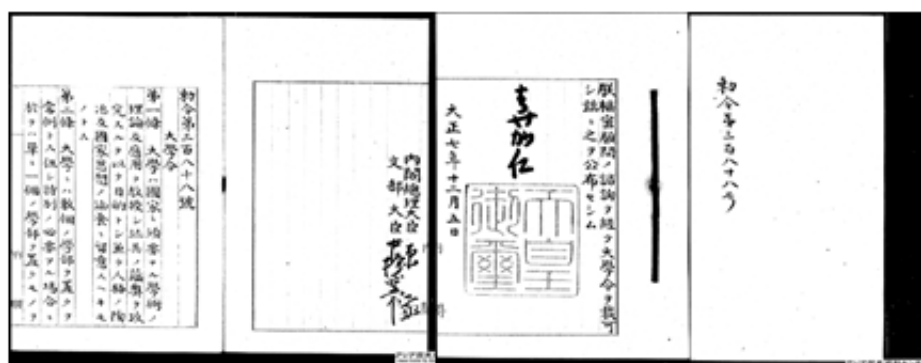 勅令第三百八十八号
朕樞密顧問ノ諮詢ヲ経テ大學令ヲ裁可
シ茲ニ之ヲ公布セシム
嘉仁
天皇御璽
大正七年十二月五日
内閣総理大臣 原敬
文部大臣 中橋徳五郎
勅令第三百八十八號
大學令
第一條 大學ハ國家ニ須要ナル學術ノ
理論及應用ヲ教授シ並其ノ蘊奥ヲ攻
究スルヲ以テ目的トシ兼テ人格ノ陶
冶及國家思想ノ涵養ニ留意スヘキモ
ノトス
第二條 大學ニハ數個ノ學部ヲ置クヲ
常例トス但シ特別ノ必要アル場合ニ
於テハ單ニ一個ノ學部ヲ置クモノヲ